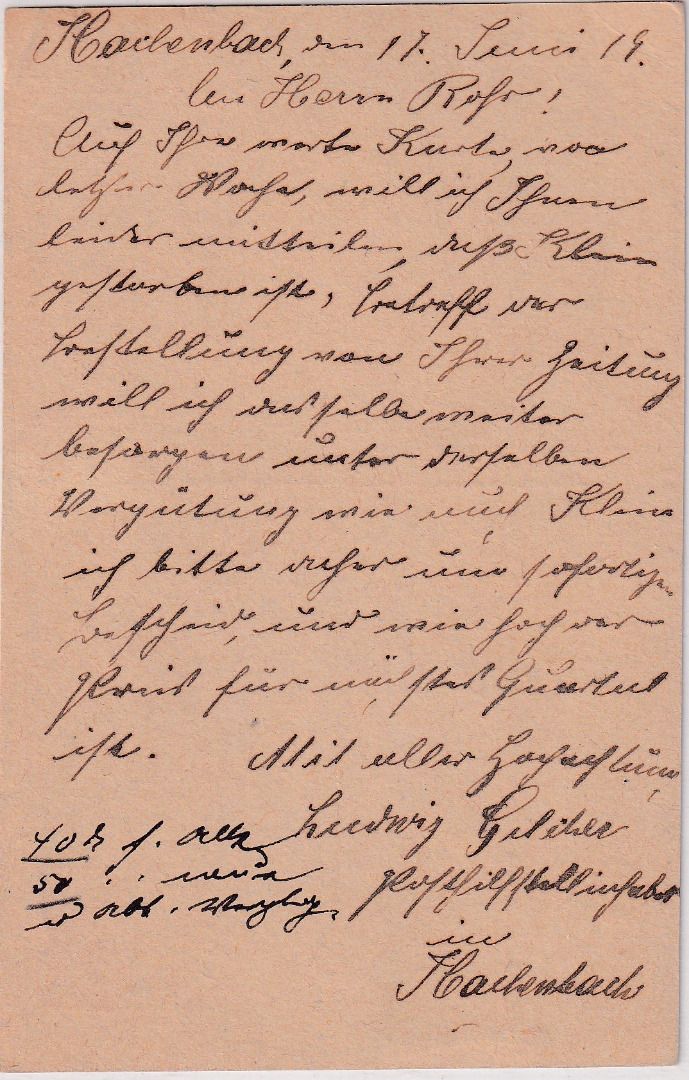 Hachenbach, den 17. Juni 19.
An Herrn Rohr!
Auf Ihre werte Karte von
letzter Woche, will ich Ihnen
leider mitteilen, daß Klein
gestorben ist, betreff der
bestellung von Ihrer Zeitung
will ich dasselbe weiter
besorgen unter derselben
Vergütung wie auch Klein
ich bitte daher um sofortigen
bescheid, und wie hoch der
Preis für nächstes Quartal
ist. Mit aller Hochachtung,
Ludwig
Posthilfstellinhaber
in
Hachenbach
40 f. alte
50 " " neue